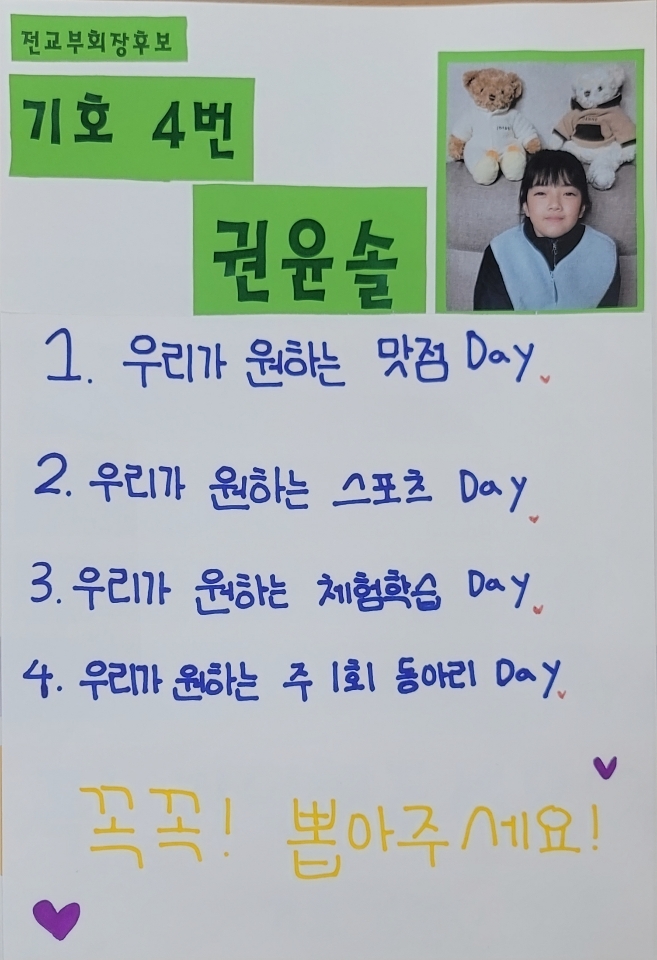 전교부회장후보
기호 4번
권윤솔
1. 우리가 원하는 맛점 Day
2. 우리가 원하는 스포츠 Day
3. 우리가 원하는 체험학습 Day
4. 우리가 원하는 주 1회 동아리 Day
꼭꼭! 뽑아주세요!